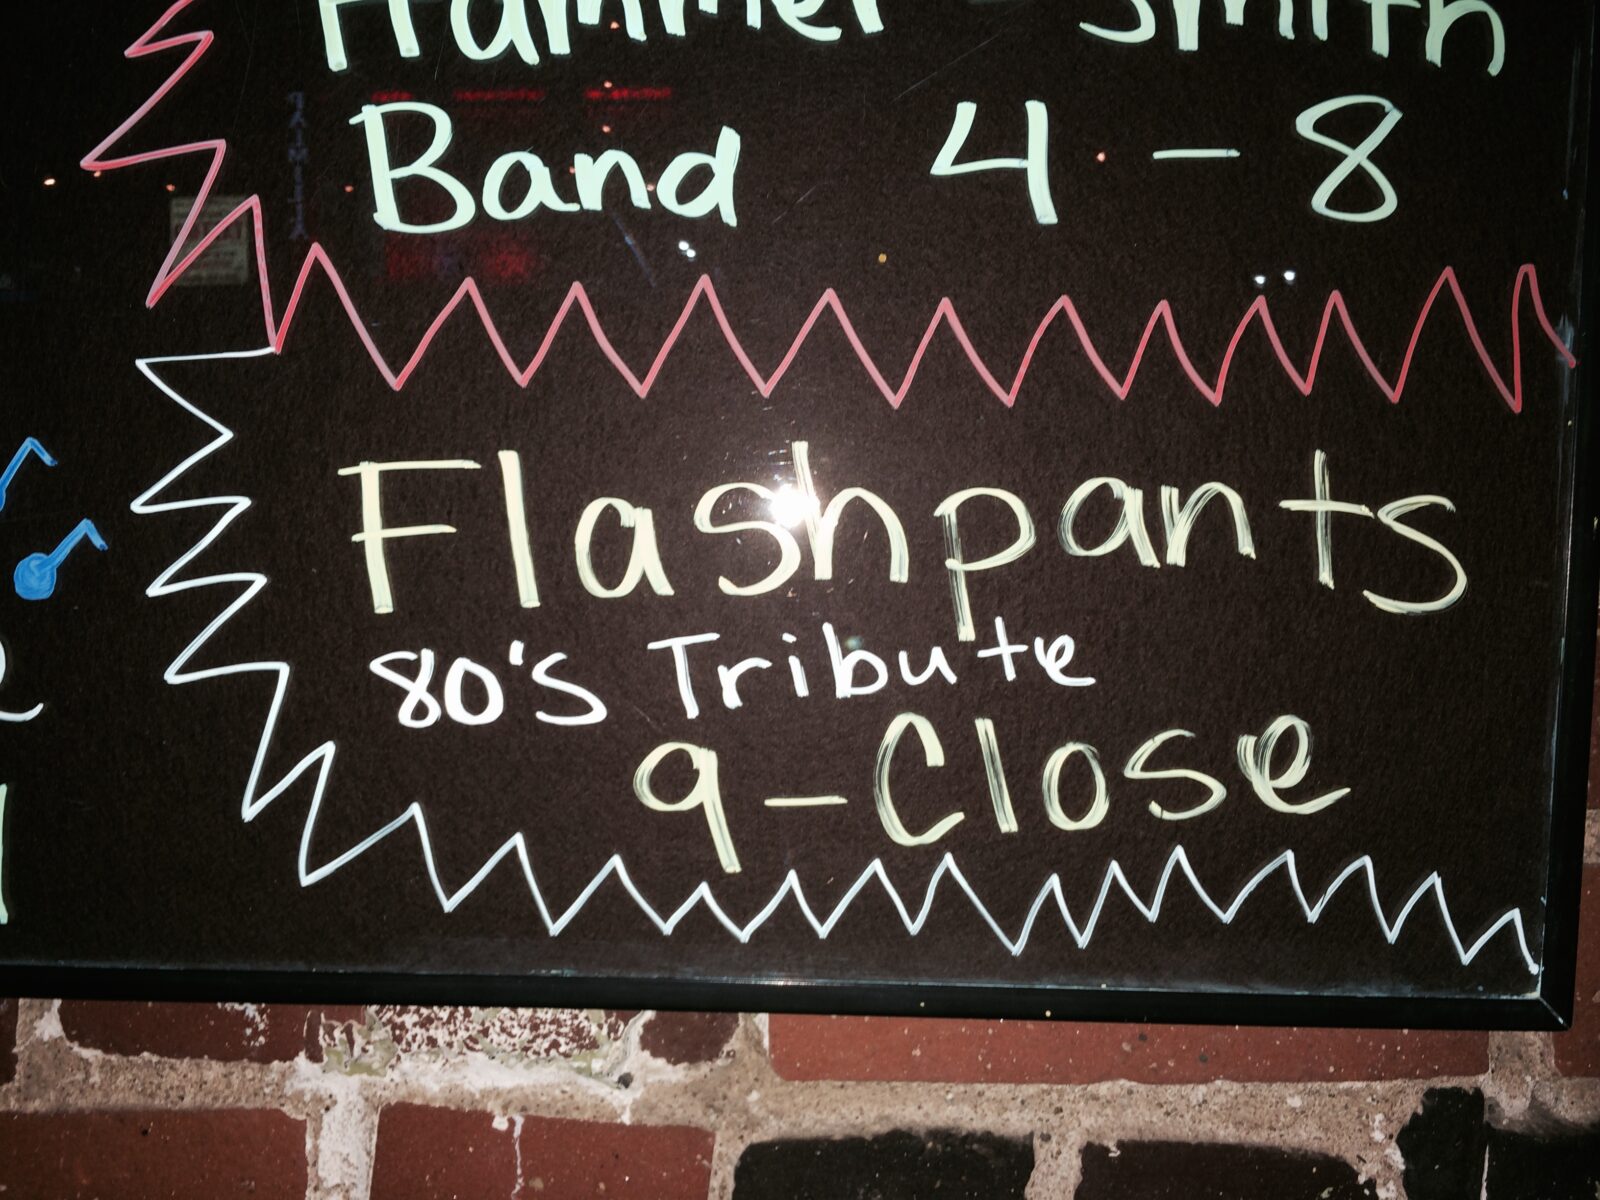 Hammer-Smith
Band 4-8
Flashpants
80's Tribute
9-Close